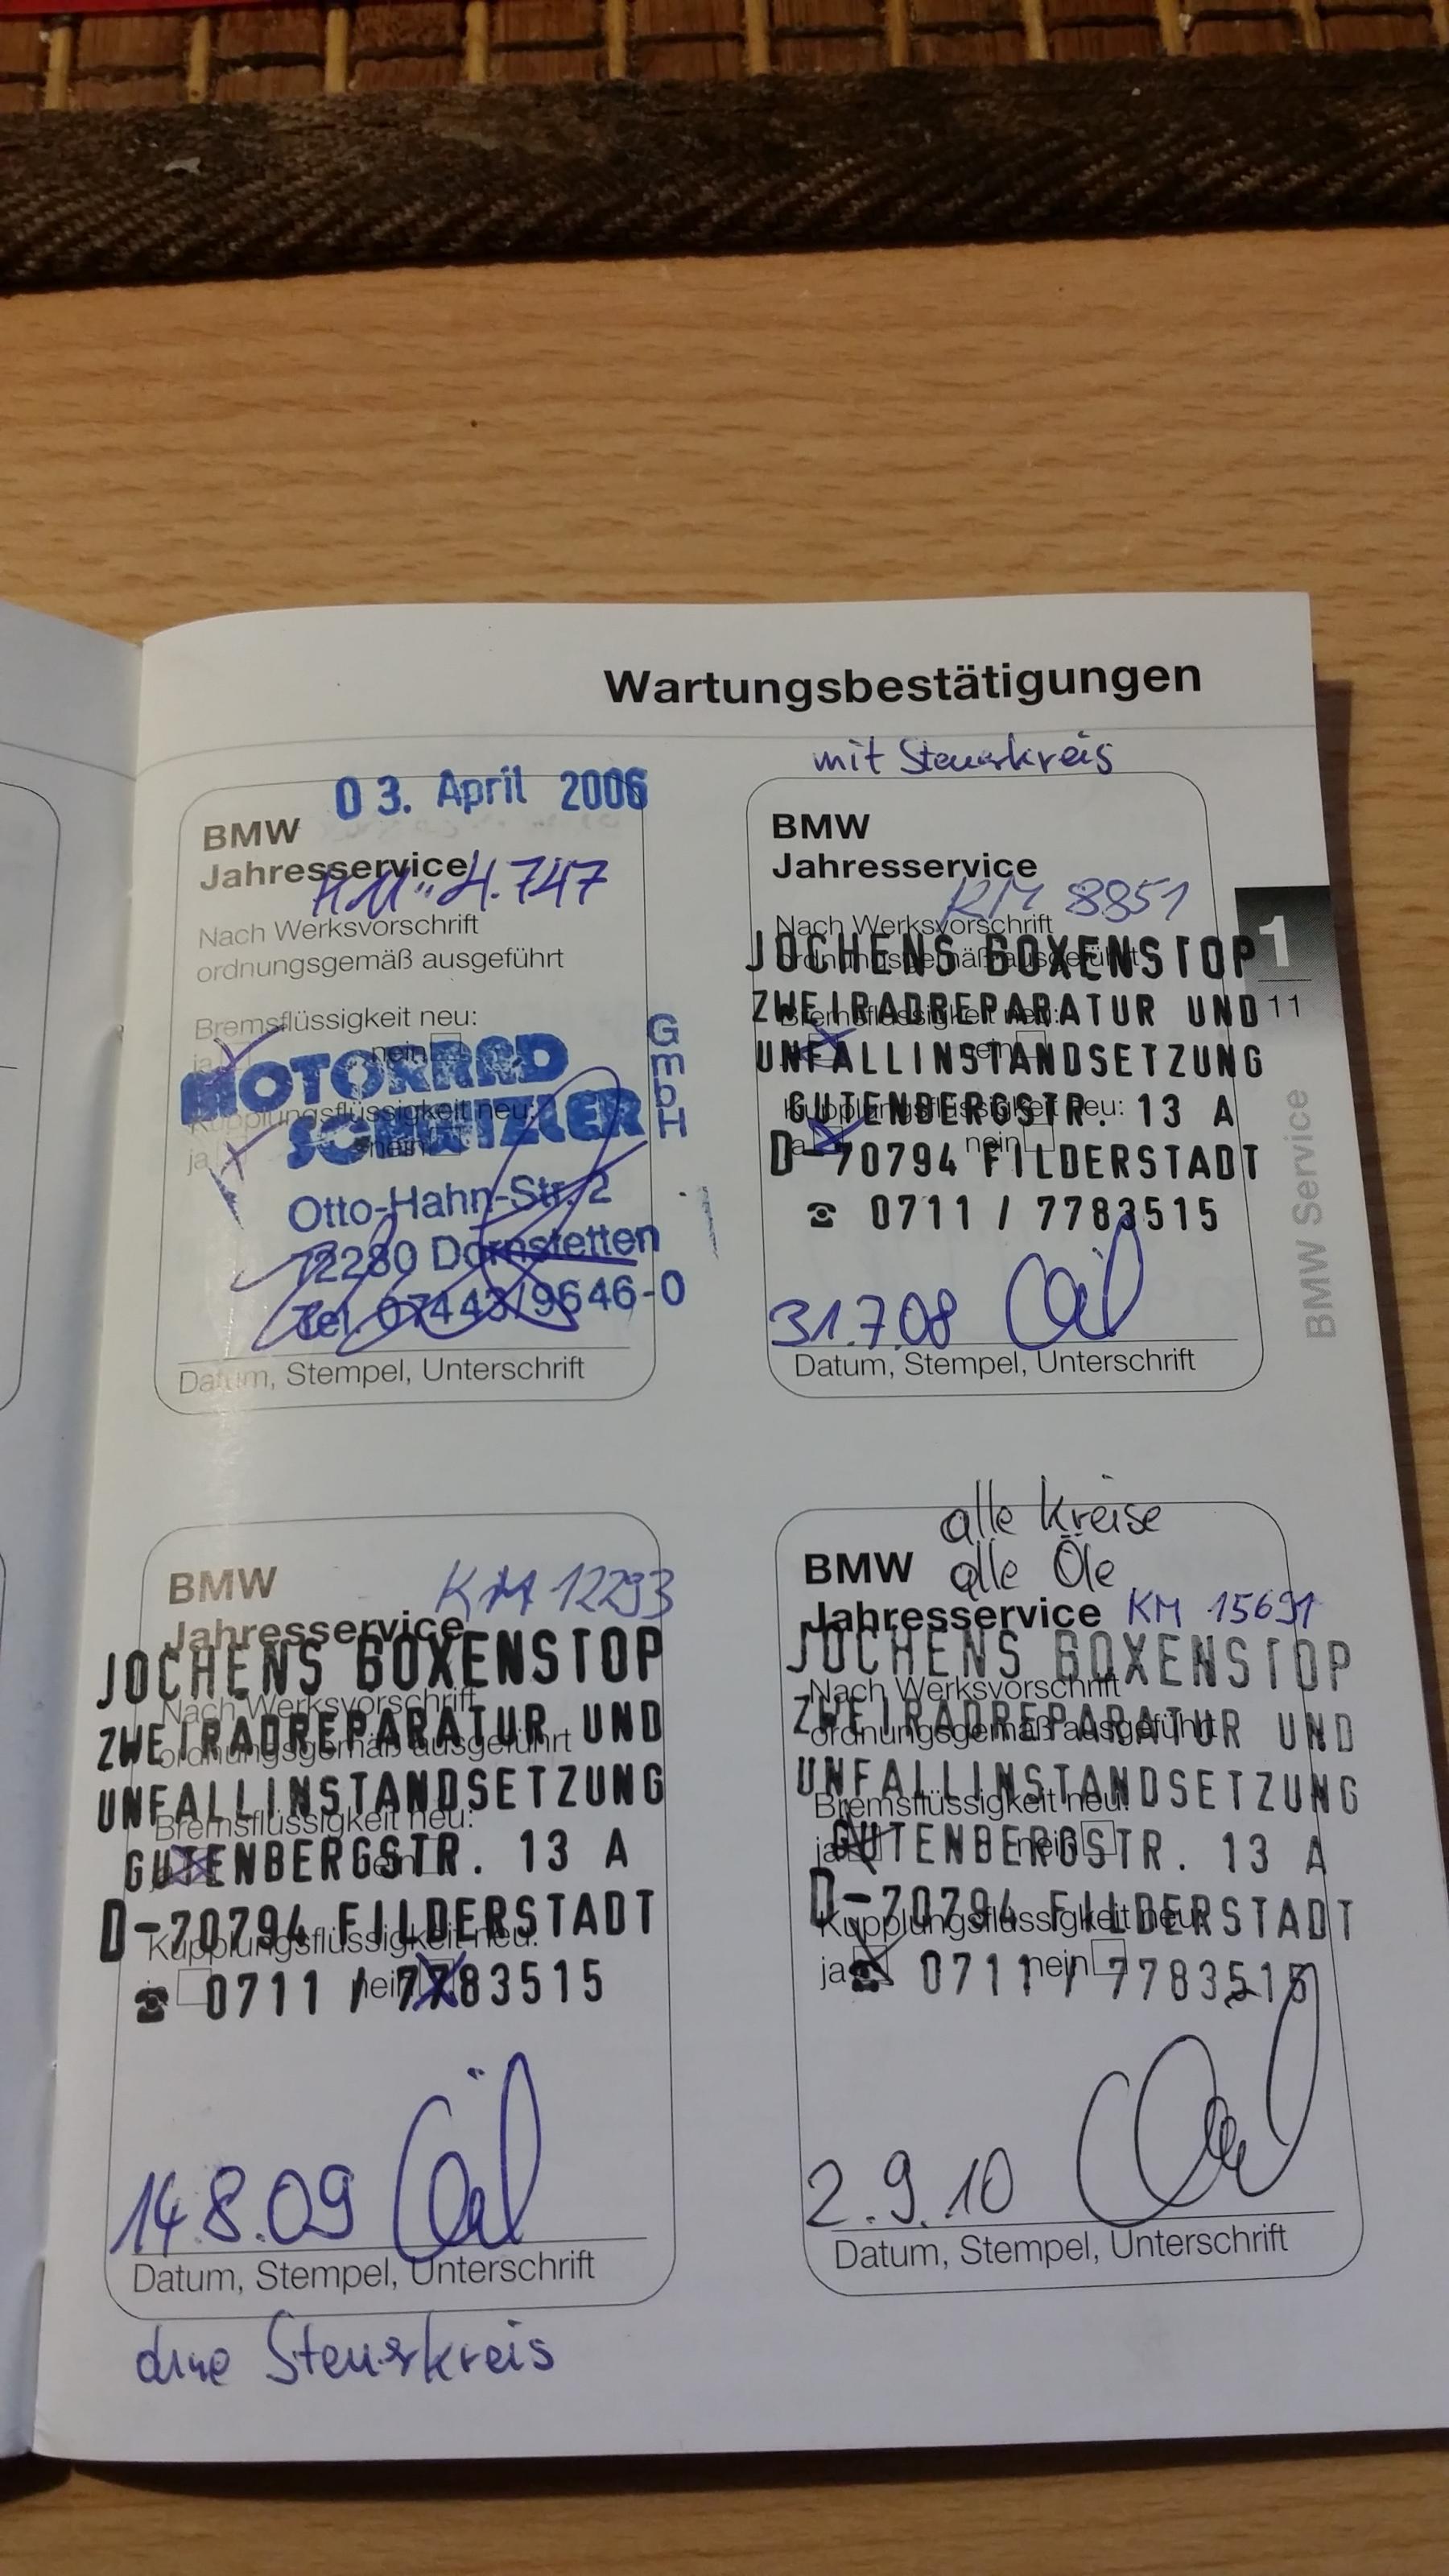 Wartungsbestätigungen
03. April 2006
BMW
Jahresservice
KM: 4.747
Nach Werksvorschrift
ordnungsgemäß ausgeführt
Bremsflüssigkeit neu:
ja nein
MOTORRAD
Kupplungsflüssigkeit neu:
SCHWEIZLER
GmbH
ja nein
Otto-Hahn-Str. 2
72280 Dornstetten
Tel. 07443/9646-0
Datum, Stempel, Unterschrift
mit Steuerkreis
BMW
Jahresservice
KM 8851
Nach Werksvorschrift
JOCHENS BOXENSTOP
ordnungsgemäß ausgeführt
ZWEIRADREPARATUR UND
Bremsflüssigkeit neu:
ja nein
UNFALLINSTANDSETZUNG
Kupplungsflüssigkeit neu:
GUTENBERGSTR. 13 A
ja nein
D-70794 FILDERSTADT
☎ 0711 / 7783515
31.7.08
Datum, Stempel, Unterschrift
1
11
BMW Service
BMW
KM 12293
Jahresservice
JOCHENS BOXENSTOP
Nach Werksvorschrift
ZWEIRADREPARATUR UND
ordnungsgemäß ausgeführt
UNFALLINSTANDSETZUNG
Bremsflüssigkeit neu:
GUTENBERGSTR. 13 A
D-70794 FILDERSTADT
Kupplungsflüssigkeit neu:
nein
☎ 0711 / 7783515
14.8.09
Datum, Stempel, Unterschrift
ohne Steuerkreis
alle Kreise
BMW
alle Öle
Jahresservice
KM 15691
JOCHENS BOXENSTOP
Nach Werksvorschrift
ZWEIRADREPARATUR UND
ordnungsgemäß ausgeführt
UNFALLINSTANDSETZUNG
Bremsflüssigkeit neu:
ja nein
GUTENBERGSTR. 13 A
D-70794 FILDERSTADT
Kupplungsflüssigkeit neu:
ja nein
☎ 0711 / 7783515
2.9.10
Datum, Stempel, Unterschrift